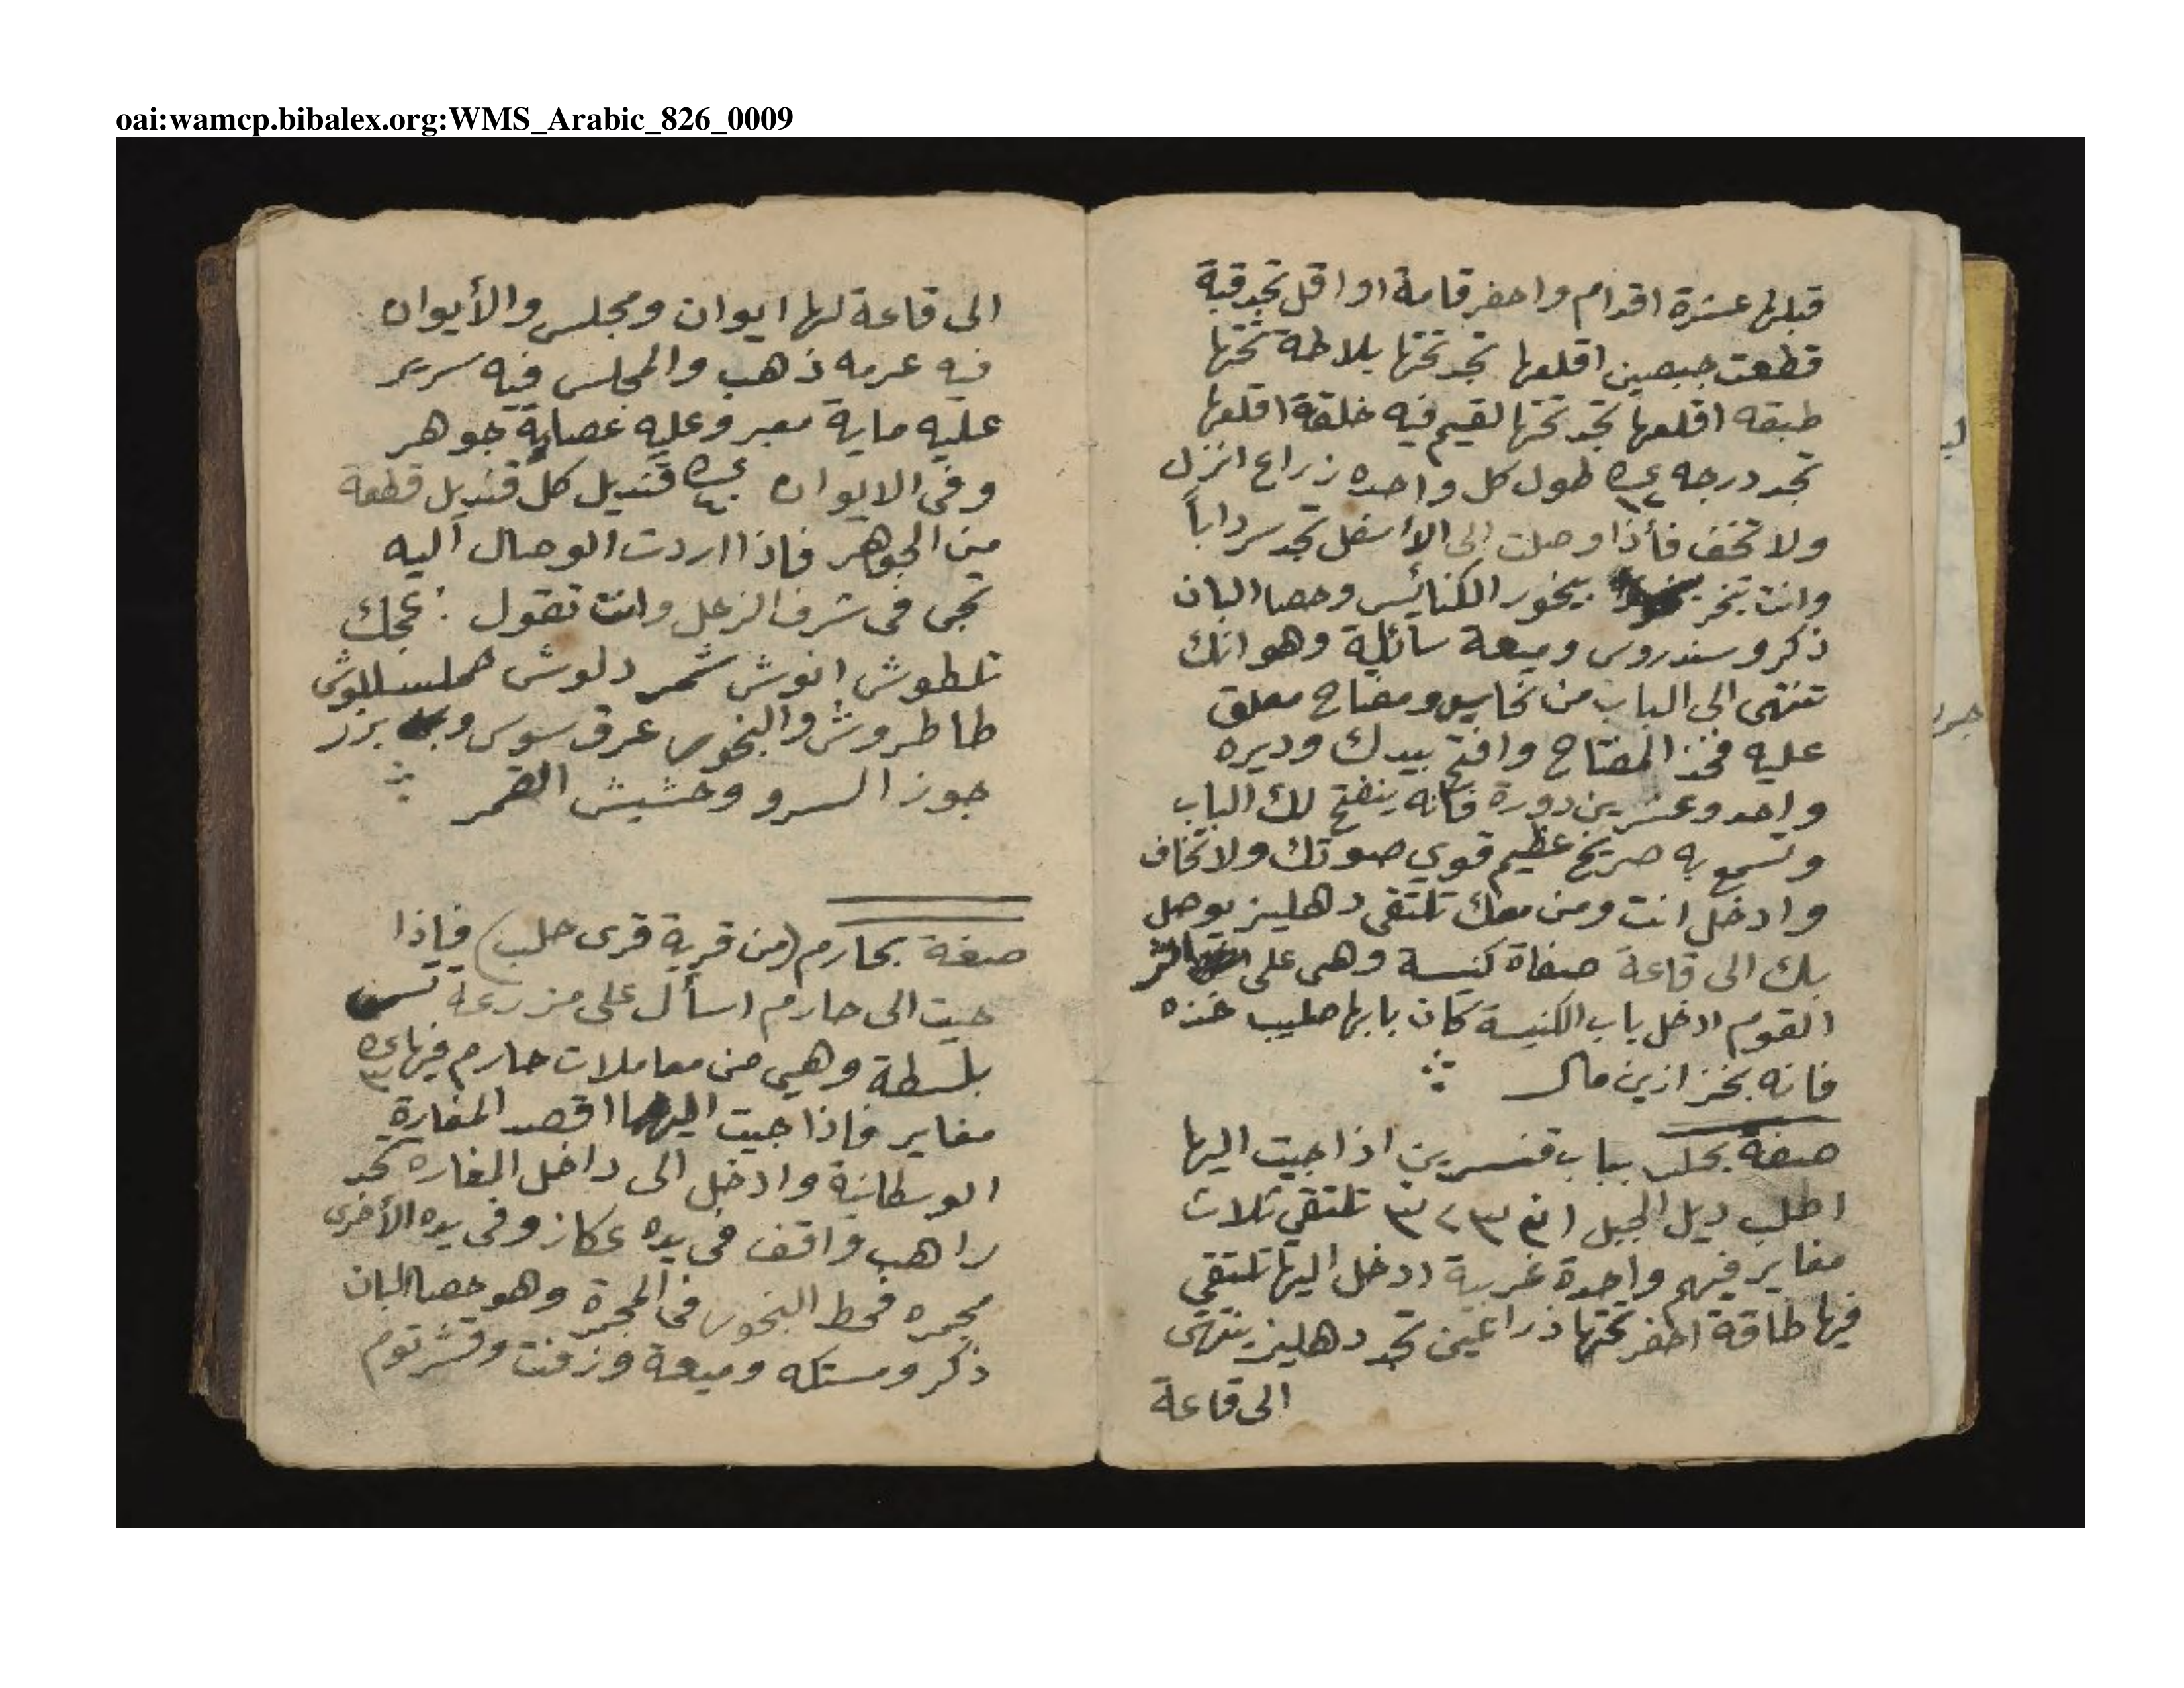 oai:wamcp.bibalex.org:WMS_Arabic_826_0009
قبلها عشرة اقدام واحفر قامة او اقل تجد قبة
قطعت جبصين اقلعها تجد تحتها بلاطه تحتها
طبقه اقلعها تجد تحتها لقيم فيه خلقة اقلعها
تجد درجه عدد ١٢ طول كل واحده زراع انزل
ولا تخف فأذا وصلت إلى الأسفل تجد سرداباً
وانت تبخر ببخور الكنائس وحصا البان
ذكر وسندروس وميعة سائلة وهو انك
تنتهى الى الباب من نحاس ومفتاح معلق
عليه فخذ المفتاح وافتح بيدك وديره
واحد وعشرين دورة فانه ينفتح لك الباب
وتسمع به صريخ عظيم قوي صوتك ولا تخاف
وادخل انت ومن معك تلتقى دهليز يوصل
بك الى قاعة صفاة كنيسة وهى على
القوم ادخل باب الكنيسة كان بابها صليب خذه
فانه بخزازين مال
صفة بحلب بباب قنسرين اذا جيت اليها
اطلب ديل الجبل تلتقي تلات
مغاير فيهم واحدة غربية ادخل اليها تلتقى
فيها طاقة احفر تحتها ذراعين تجد دهليز ينتهى
الى قاعة
الى قاعة لها ايوان ومجلس والأيوان
فيه عرمه ذهب والمجلس فيه سرير
عليه ماية معبر وعليه عصابة جوهر
وفى الايوان عدد ٤٠ قنديل كل قنديل قطعة
من الجوهر فاذا اردت الوصال اليه
تجى فى شرف الزحل وانت تقول : عجك
تلطوش انوش شمر دلوش
طاطروش والبخور عرق سوس وبزر
جوز السرو وحشيش القمر
صفة بحارم (من قرية قرى حلب) فإذا
جيت الى حارم اسأل على مزرعة
بلسطة وهي من معاملات حارم فيها عدد ٣
مغاير فاذا جيت اليها اقصد المغارة
الوسطانية وادخل الى داخل المغاره تجد
راهب واقف فى يده عكاز وفى يده الأخرى
مجمره فحط البخور فى المجمرة وهو حصا البان
ذكر ومستكه وميعة وزفت وقشر توم